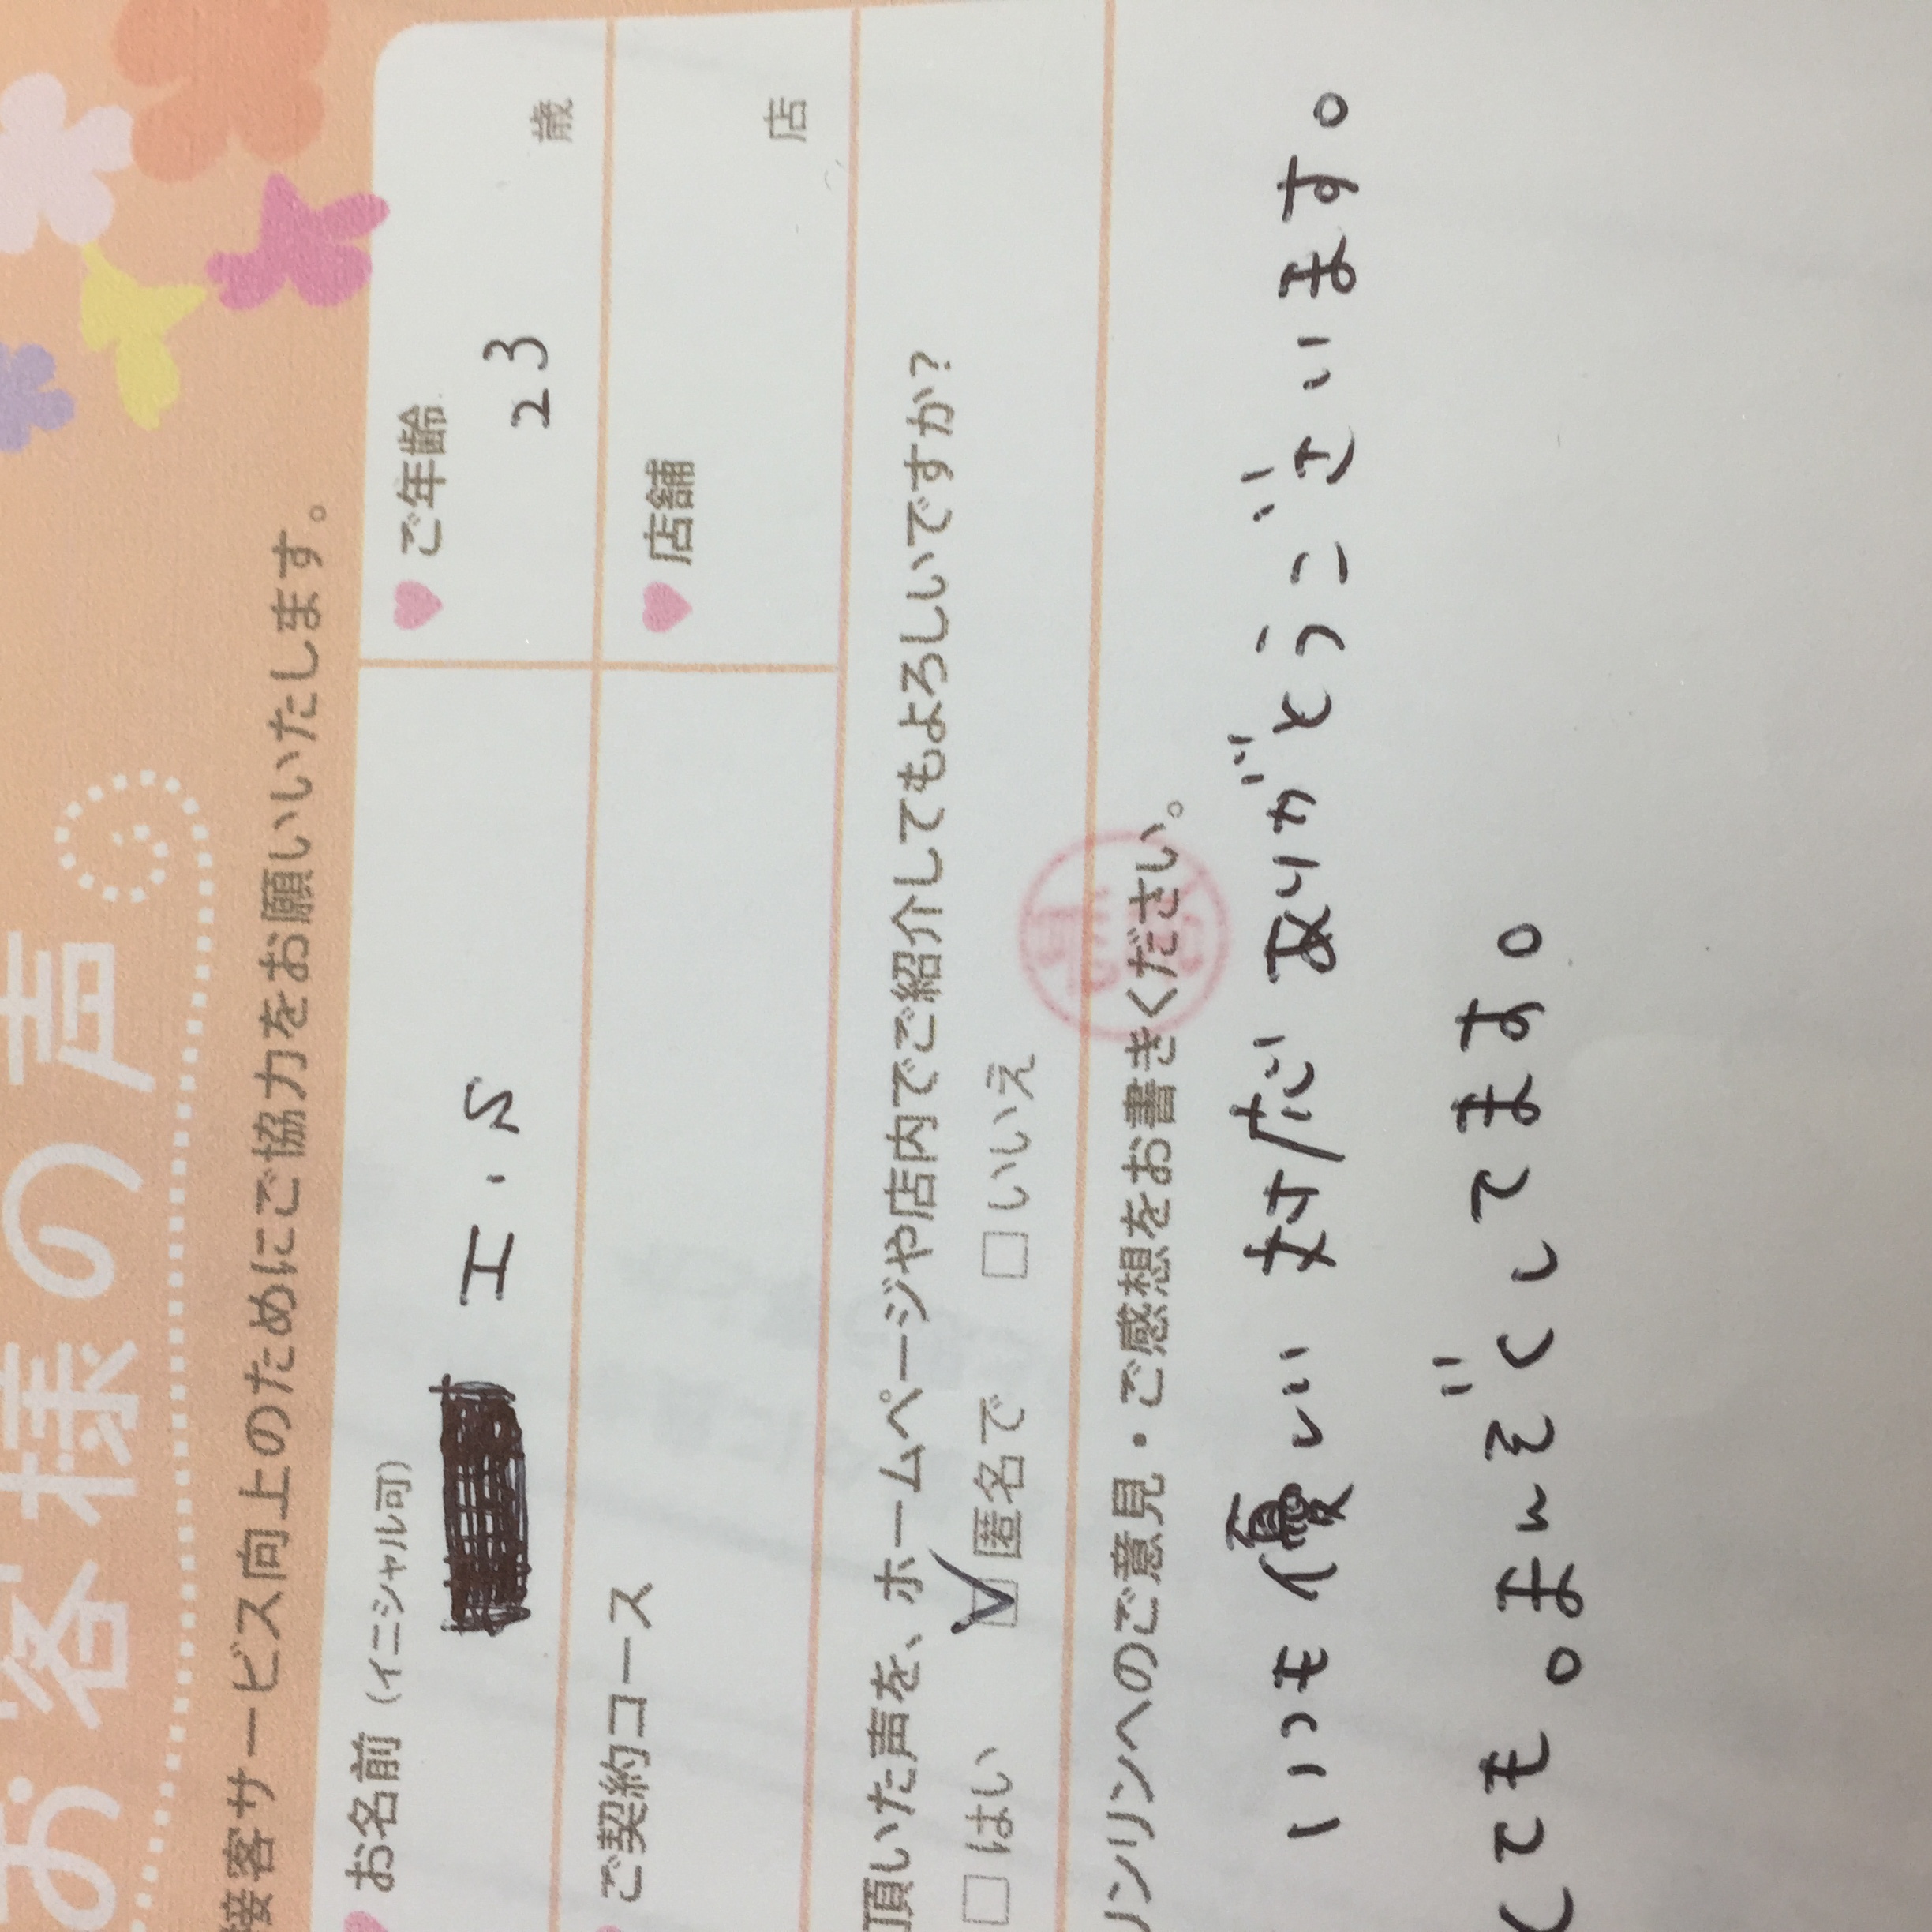 お客様の声
接客サービス向上のためにご協力をお願いいたします。
お名前(イニシャル可)
I.N
ご年齢
23 歳
ご契約コース
店舗
店
頂いた声を、ホームページや店内でご紹介してもよろしいですか?
□はい ☑匿名で □いいえ
ンリンへのご意見・ご感想をお書きください。
いつも優しい対応ありがとうございます。
くても。まんぞくしてます。